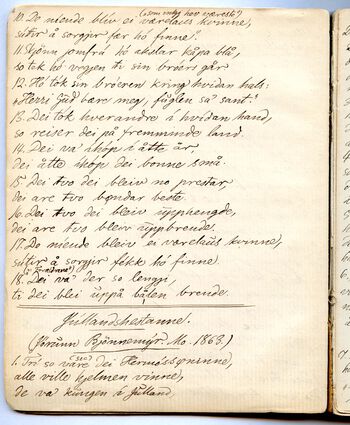 (som intgj hev værest?)
10. De niende bliv ei varelaus kvinne,
sutir å sorgjir far hó finne.
11. Skjönn jomfrú hó akslar kåpa blå,
so tek hó vegjen ti sin bröirs går
12. Hó tók sin bróeren kring hvidan hals:
Herri Gud bære meg, fuglen sa' sant.
13. Dei tók hverandre i hvidan hand,
so reiser dei på fremmende land.
14. Dei va' ihóp i åtte år,
dei åtte ihóp dei bonne små.
15. Dei tvo dei bleiv no prestar
dei are tvo bøndar beste.
16. Dei tvo dei bleiv upphengde,
dei are tvo bleiv uppbrende.
17. Do niende bleiv ei varelaus kvinne,
sutir å sorgjir fekk hó finne.
18. Dei va' der so lengji,
ti dei blei uppå bålen brende.
Jutlandshestanne.
(Jórunn Bjönnemyr. Mo. 1863.)
1. Tró so våre dei Hermóssøninne,
alle ville hjelmen vinne,
de va' kungen á Jutland.